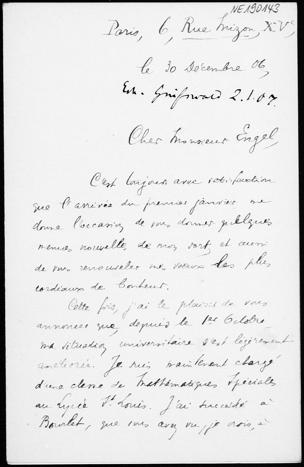 NE190143
Paris, 6, Rue Mizon, XV.
le 30 Décembre 06,
Erh. Greifswald 2.1.07
Cher Monsieur Engel,
C'est toujours avec satisfaction
que l'arrivée du premier janvier me
donne l'occasion de vous donner quelques
menues nouvelles de mon sort, et aussi
de vous renouveler mes voeux les plus
cordiaux de bonheur.
Cette fois, j'ai le plaisir de vous
annoncer que, depuis le 1er Octobre
ma situation universitaire s'est légèrement
améliorée. Je suis maintenant chargé
d'une classe de Mathématiques Spéciales
au Lycée St Louis. J'ai succédé à
Bourlet, que vous avez vu, je crois, à